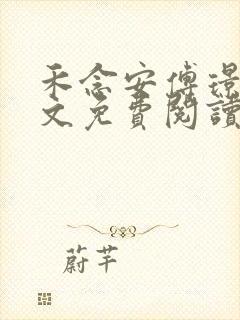 禾念安傅璟
文免費閱讀
蔚芊